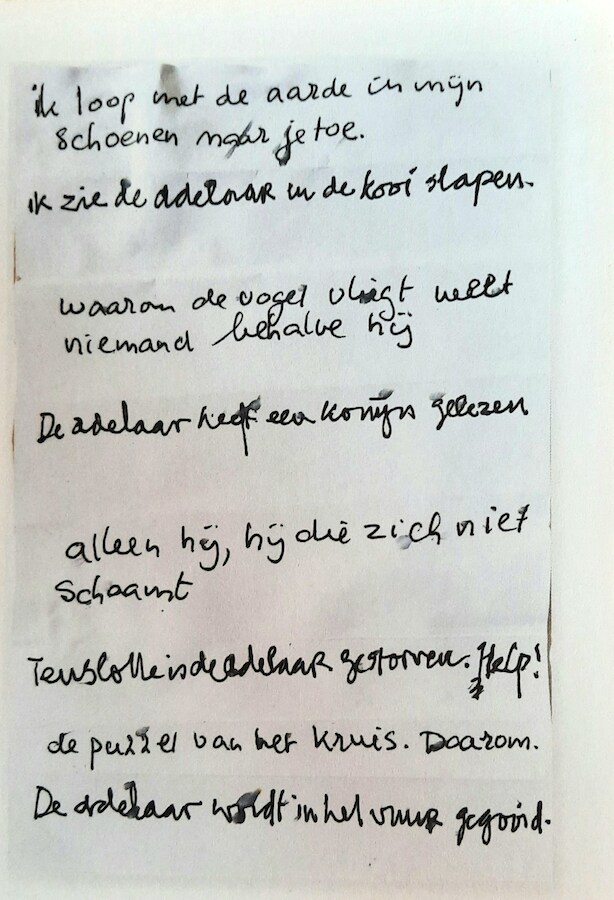 ik loop met de aarde in mijn
schoenen naar je toe.
ik zie de adelaar in de kooi slapen.
waarom de vogel vliegt weet
niemand behalve hij
De adelaar heeft een konijn gelezen
alleen hij, hij die zich niet
schaamt
Tenslotte is de adelaar gestorven. Help!
de puzzel van het kruis. Daarom.
De adelaar wordt in het vuur gegooid.